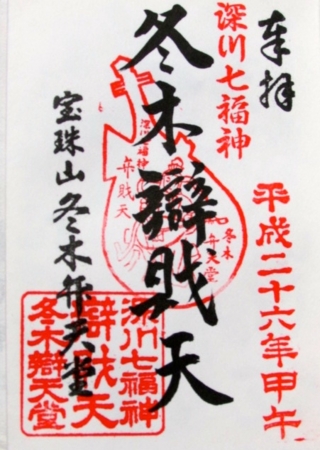 奉拝
平成二十六年甲午
深川七福神
冬木辯戝天
宝珠山冬木弁天堂
深川七福神
弁戝天
冬木
弁天堂
深川七福神
辯戝天
冬木辯天堂